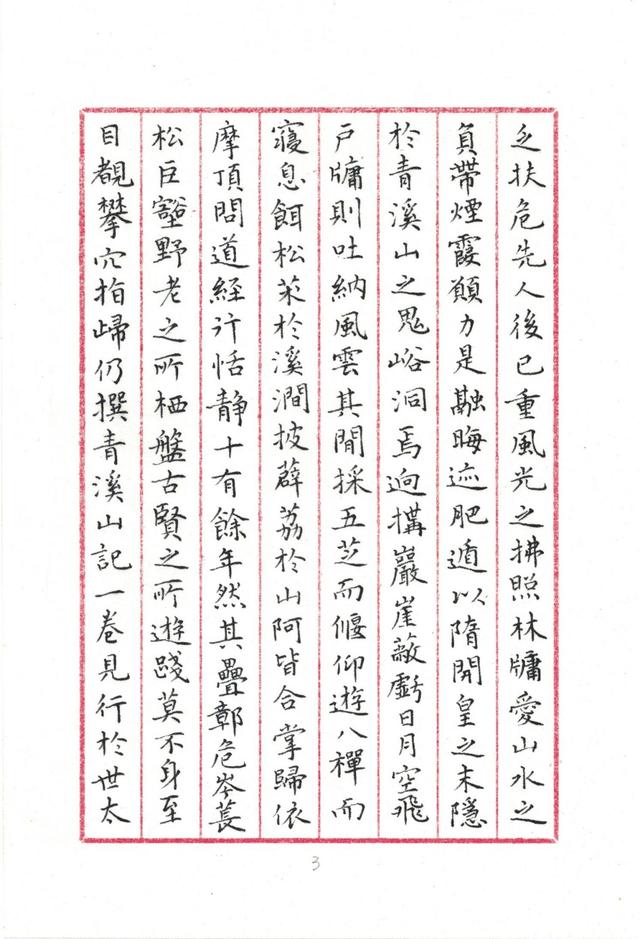 之扶危先人後已重風光之拂照林牖愛山水之
負帶煙霞願力是融晦迹肥遁以隋開皇之末隱
於青溪山之鬼峪洞焉迥構巖崖蔽虧日月空飛
戶牖則吐納風雲其間採五芝而偃仰遊八禪而
寢息餌松菜於溪澗披薜荔於山阿皆合掌歸依
摩頂問道經行恬靜十有餘年然其疊鄣危岑萇
松巨壑野老之所栖盤古賢之所遊踐莫不身至
目覩攀穴指歸仍撰青溪山記一卷見行於世太
3